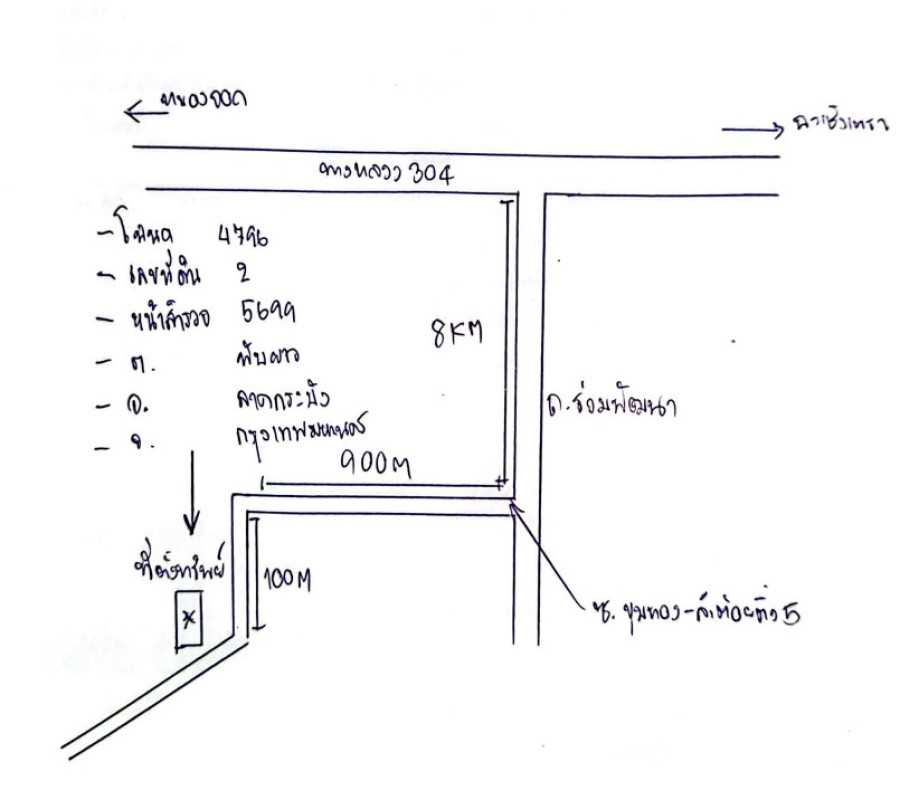 หนองจอก
ฉะเชิงเทรา
ทางหลวง 304
- โฉนด 4796
- เลขที่ดิน 2
- หน้าสำรวจ 5699
- ต. ทับยาว
- อ. ลาดกระบัง
- จ. กรุงเทพมหานคร
8KM
ถ.ร่วมพัฒนา
900M
ที่ตั้งทรัพย์
100M
ซ. ขุมทอง-ลำต้อยติ่ง 5